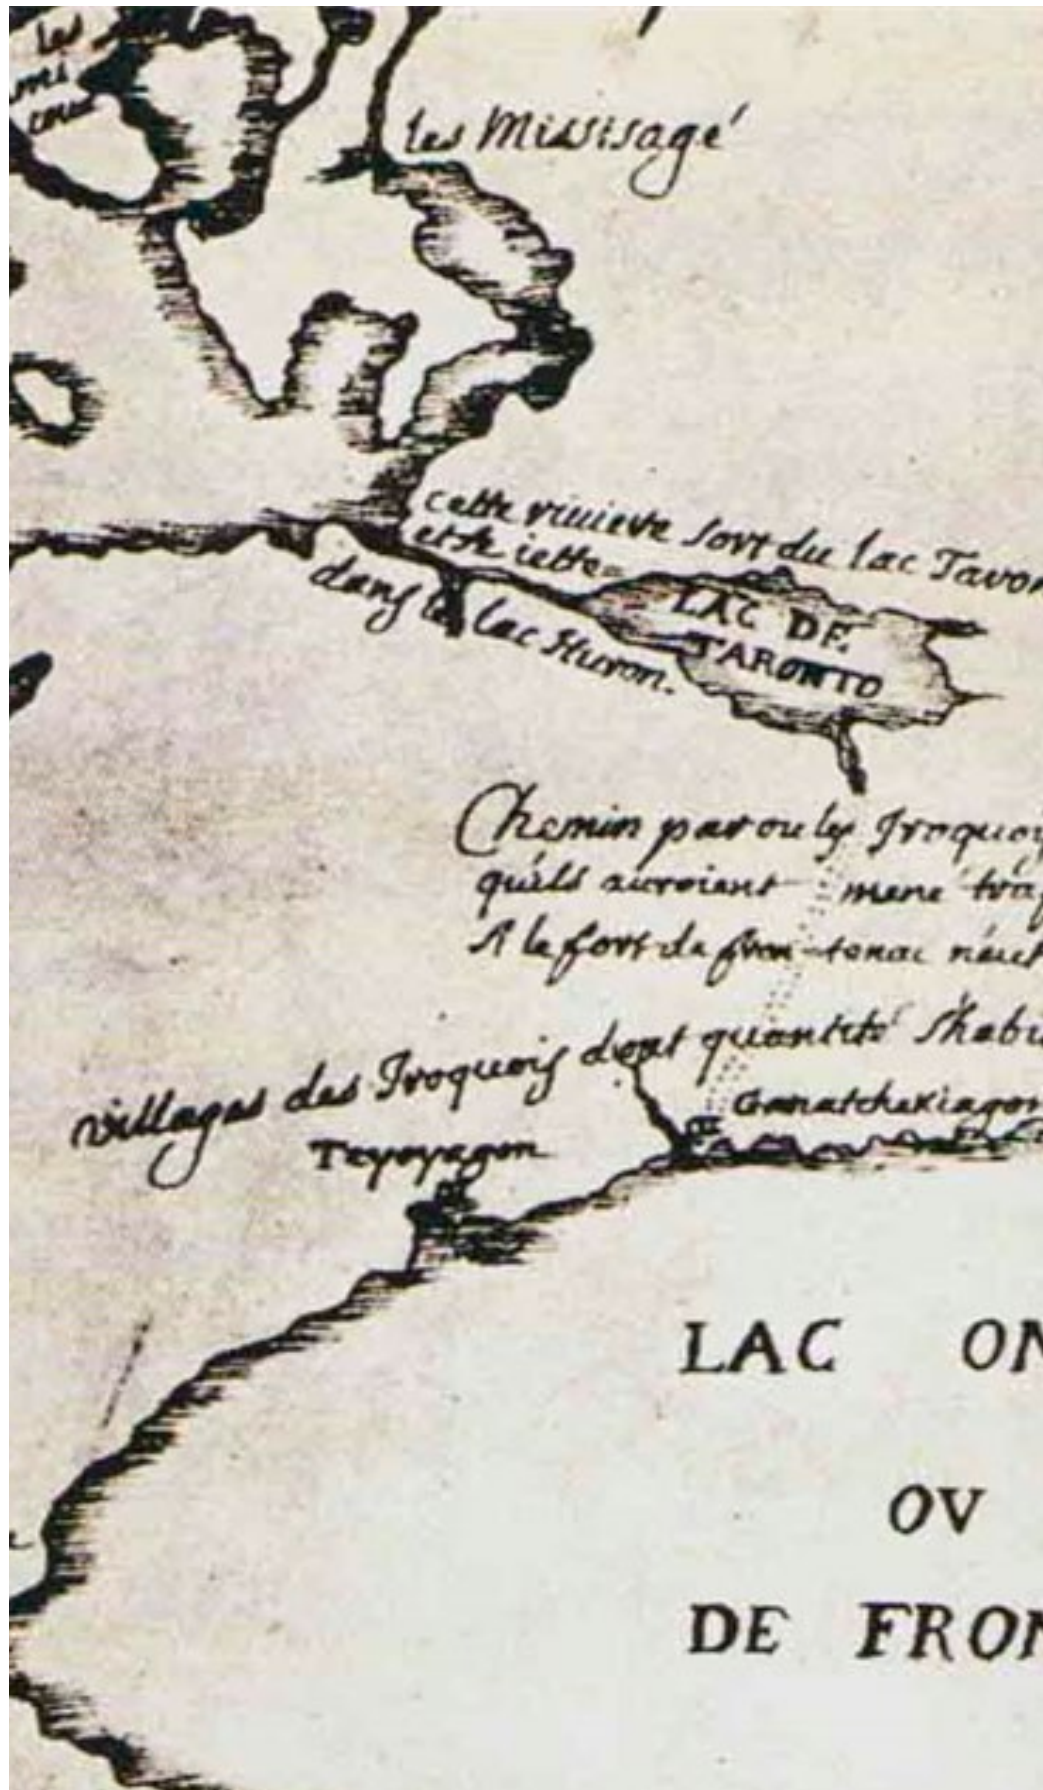 les
les Missisagé
cette riviere sort du lac Taron
et se iette
dans le lac Huron.
LAC DE
TARONTO
Chemin par ou les Iroquois
qu'ils auroient mené traf
A le fort de fron-tenac n'eut
villages des Iroquois dont quantité s'habi
Ganatchekiagon
Teyoyagon
LAC ON
OV
DE FRON